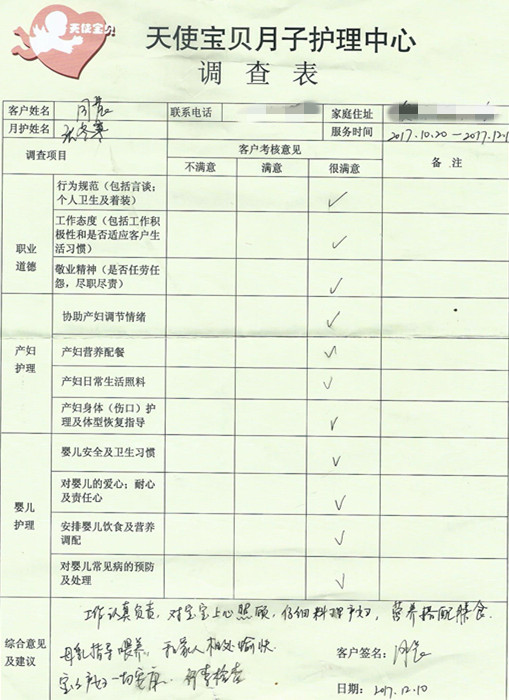 天使宝贝
天使宝贝月子护理中心
调查表
客户姓名 联系电话 家庭住址
月护姓名 服务时间 2017.10.20 — 2017.12.1
调查项目 客户考核意见 备注
不满意 满意 很满意
职业道德
行为规范（包括言谈；
个人卫生及着装） ✓
工作态度（包括工作积
极性和是否适应客户生
活习惯） ✓
敬业精神（是否任劳任
怨，尽职尽责） ✓
产妇护理
协助产妇调节情绪 ✓
产妇营养配餐 ✓
产妇日常生活照料 ✓
产妇身体（伤口）护
理及体型恢复指导 ✓
婴儿护理
婴儿安全及卫生习惯 ✓
对婴儿的爱心；耐心
及责任心 ✓
安排婴儿饮食及营养
调配 ✓
对婴儿常见病的预防
及处理 ✓
综合意见
及建议
工作认真负责，对宝宝上心照顾，仔细料理产妇，营养搭配膳食.
母乳指导喂养，和家人相处愉快.
宝宝产妇一切安康.
客户签名：
日期：2017.12.10